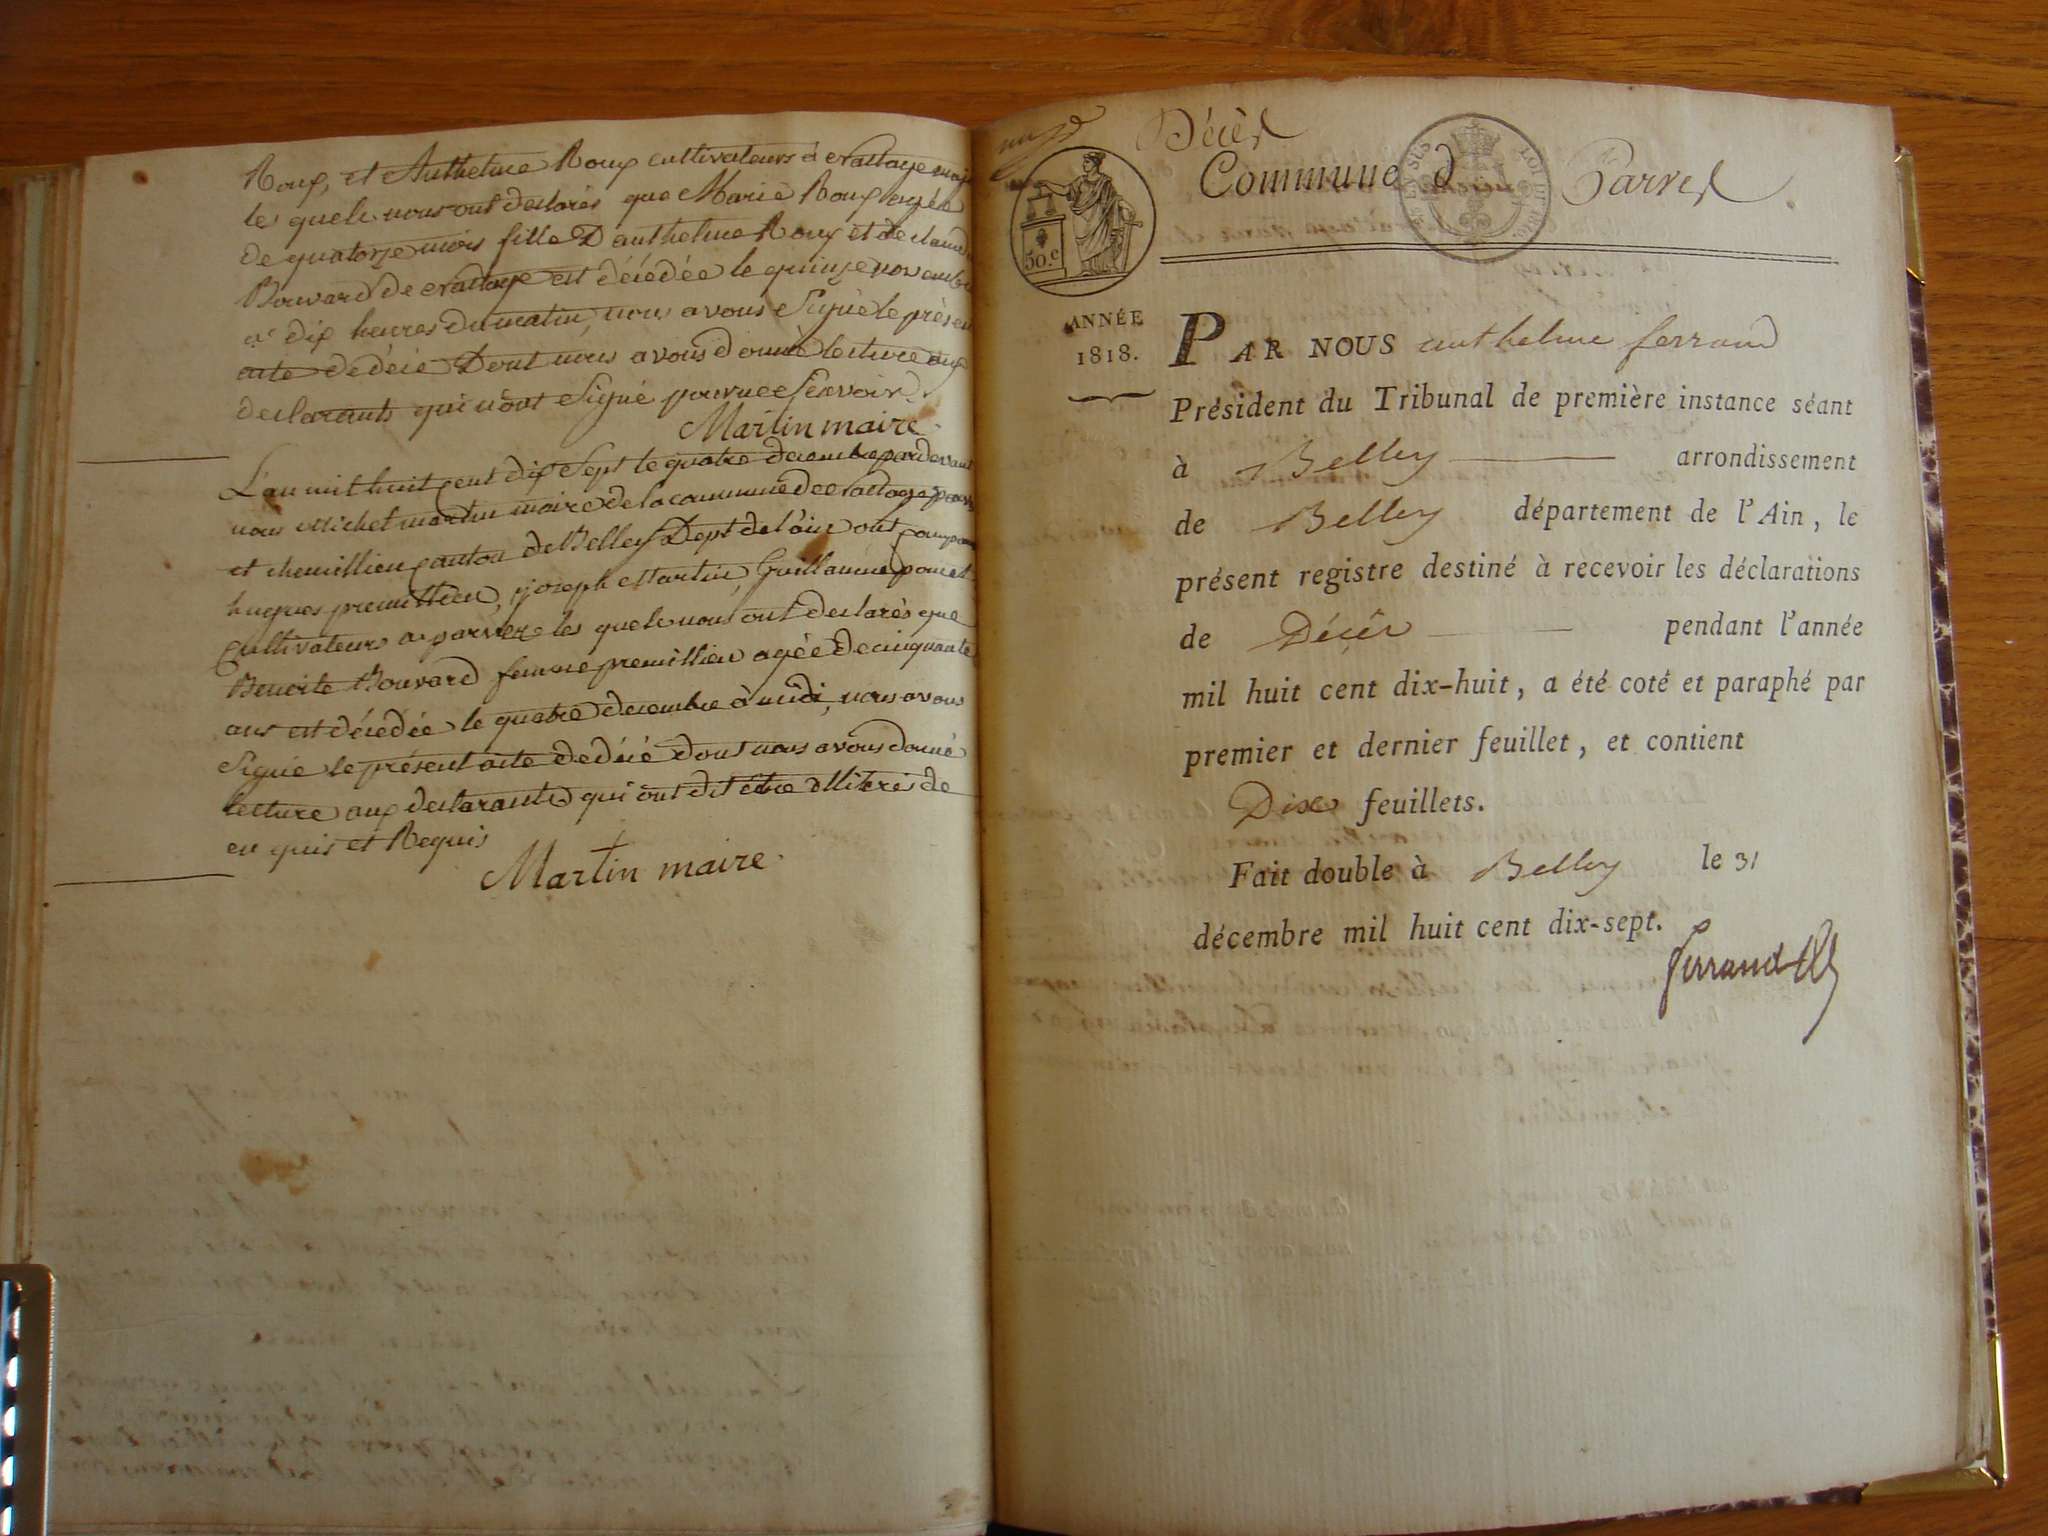 Roux, et Anthelme Roux cultivateurs à crastaye
les quels nous ont declarés que Marie Roux agée
de quatorze mois fille D'anthelme Roux et de
Bouvard de crastaye est décédée le quinze novembre
a dix heures du matin, nous avons Signé le présent
acte de décé Dont nous avons donné lecture aux
declarants qui n'ont Signé pour ne Scavoir
Martin maire
L'an mil huit cent dix Sept le quatre decembre pardevant
nous Michel martin maire de la commune de crastaye
et chemillieu canton de Belley Dept de l'ain ont
hugues premillieu, joseph Martin, Guillaume
Cultivateurs a parvez les quels nous ont declarés que
Benoite Bouvard femme premillieu agée de cinquante
ans est décédée le quatre decembre à midi, nous avons
Signé le présent acte de décé dont nous avons donné
lecture aux declarants qui ont dit être illiterés de
en quis et Requis
Martin maire
Décès
Commune d Parves
50.c
ANNÉE
1818.
PAR NOUS anthelme ferrand
Président du Tribunal de première instance séant
à Belley arrondissement
de Belley département de l'Ain, le
présent registre destiné à recevoir les déclarations
de Décès pendant l'année
mil huit cent dix-huit, a été coté et paraphé par
premier et dernier feuillet, et contient
Dix feuillets.
Fait double à Belley le 31
décembre mil huit cent dix-sept.
ferrand